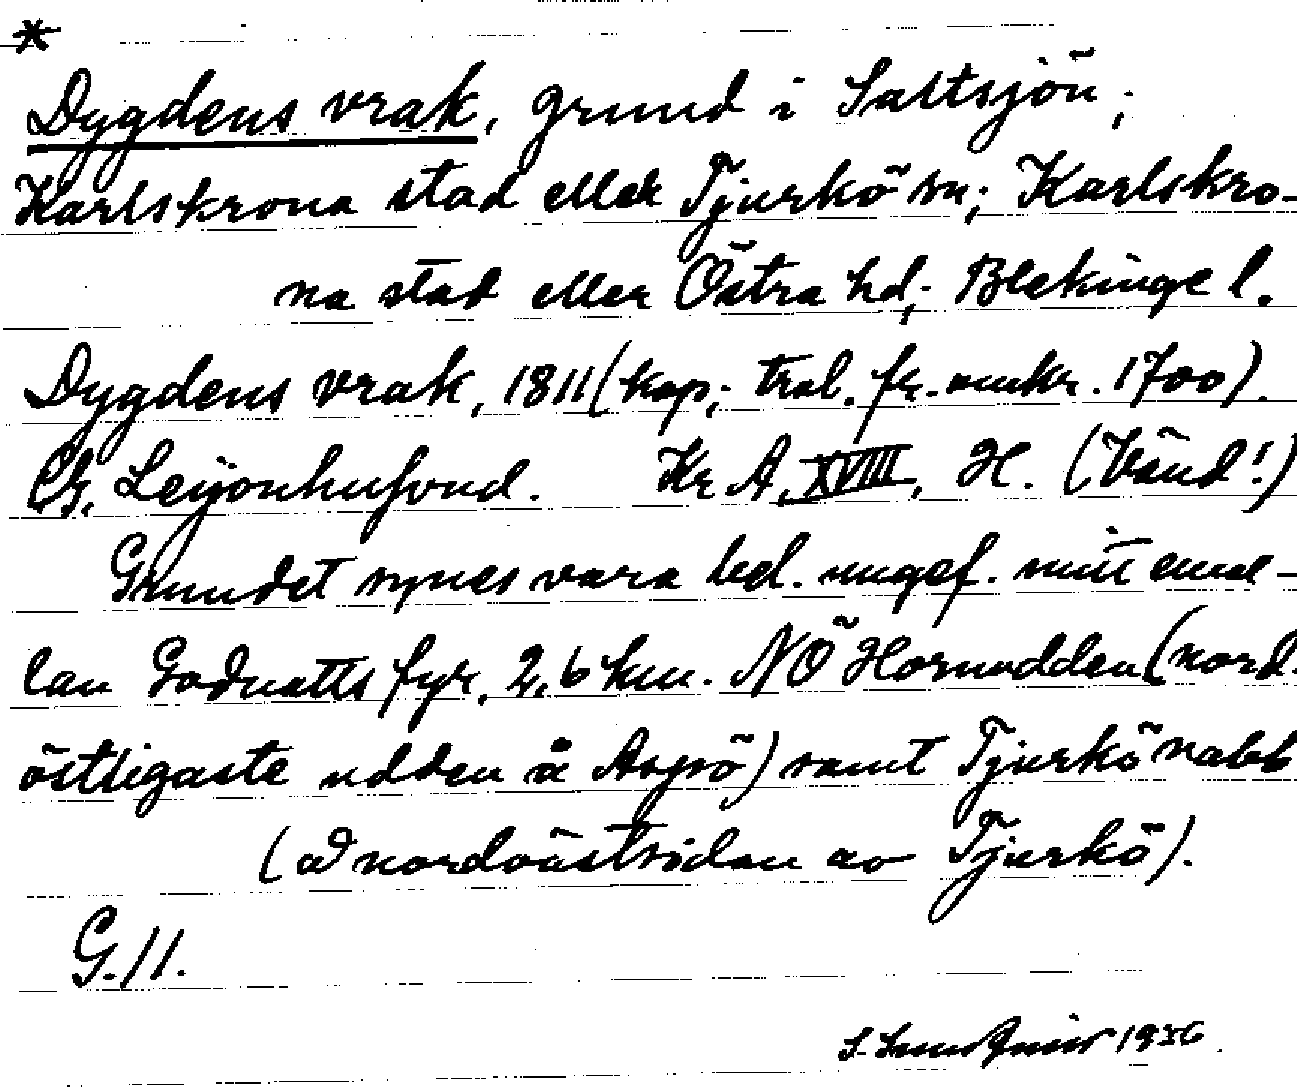 *
Dygdens vrak, grund i Saltsjön,
Karlskrona stad eller Tjurkö sn; Karlskro-
na stad eller Östra hd; Blekinge l.
Dygdens vrak, 1811 (kop; tral. fr. omkr. 1700).
Leijonhufvud. Kr A, XVIII, H. (Vänd!)
Grundet synes vara bel. ungef. mitt emel-
lan Godnatts fyr, 2,6 km. NÖ Hornudden (nord-
östligaste udden å Aspö) samt Tjurkö nabb
(å nordvästsidan av Tjurkö).
G. 11.
1936